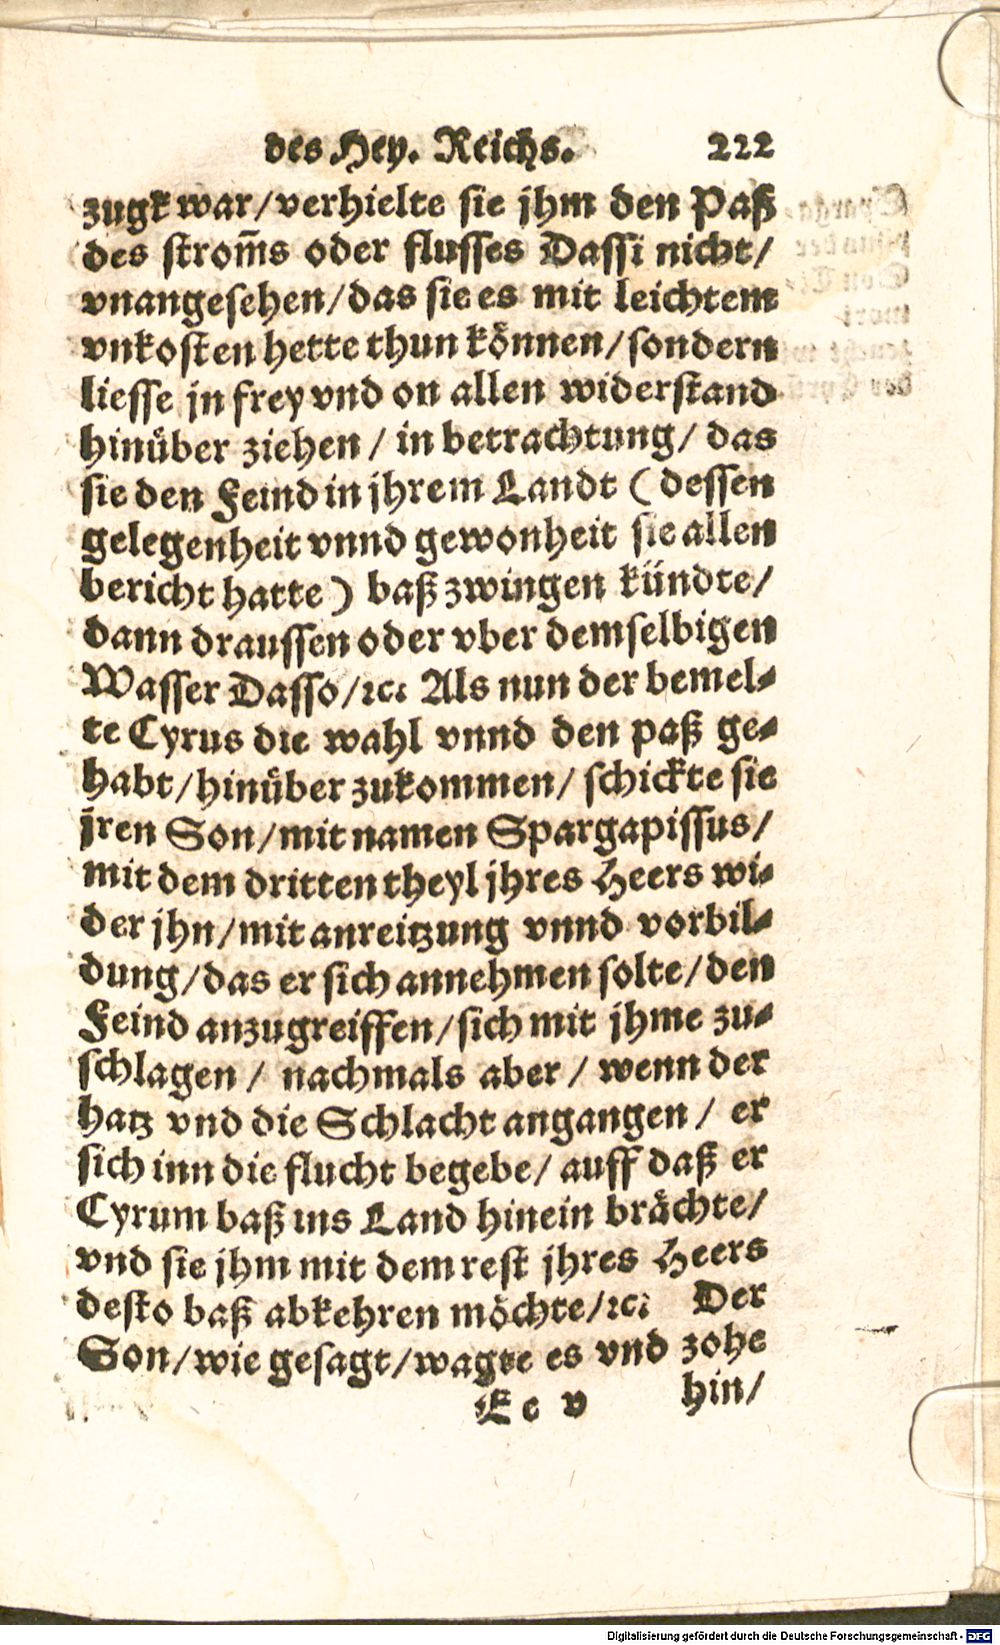 des Hey. Reichs. 222
zugk war/verhielte sie jhm den Paß
des strom̃s oder flusses Dassi nicht/
vnangesehen/das sie es mit leichtem
vnkosten hette thun koͤnnen/sondern
liesse jn frey vnd on allen widerstand
hinuͤber ziehen / in betrachtung/ das
sie den Feind in jhrem Landt ( dessen
gelegenheit vnnd gewonheit sie allen
bericht hatte ) baß zwingen kündte/
dann draussen oder vber demselbigen
Wasser Dasso/ꝛc: Als nun der bemel-
te Cyrus die wahl vnnd den paß ge-
habt/hinuͤber zukommen/ schickte sie
jren Son/mit namen Spargapissus/
mit dem dritten theyl jhres Heers wi-
der jhn/mit anreitzung vnnd vorbil-
dung/das er sich annehmen solte/den
Feind anzugreiffen/sich mit jhme zu-
schlagen / nachmals aber / wenn der
hatz vnd die Schlacht angangen / er
sich inn die flucht begebe/ auff daß er
Cyrum baß ins Land hinein braͤchte/
vnd sie jhm mit dem rest jhres Heers
desto baß abkehren moͤchte/ꝛc: Der
Son/wie gesagt/wagte es vnd zohe
Ee v hin/
Digitalisierung gefördert durch die Deutsche Forschungsgemeinschaft - DFG